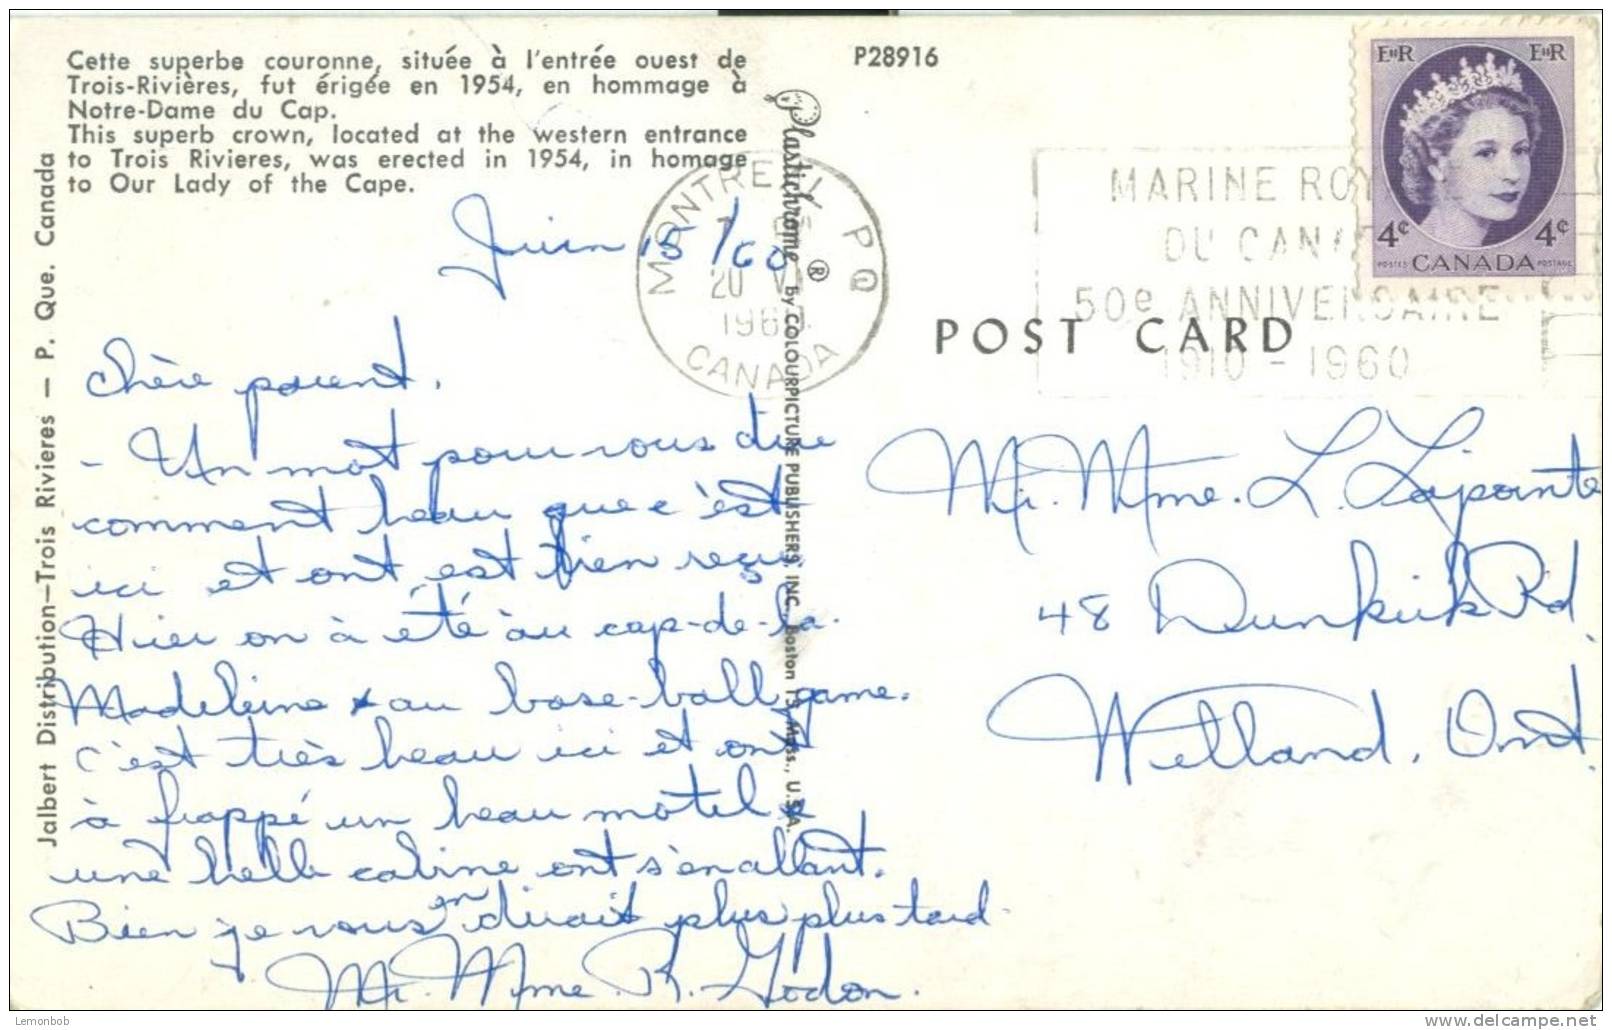 Cette superbe couronne, située à l'entrée ouest de
Trois-Rivières, fut érigée en 1954, en hommage à
Notre-Dame du Cap.
This superb crown, located at the western entrance
to Trois Rivieres, was erected in 1954, in homage
to Our Lady of the Cape.
P28916
Jalbert Distribution—Trois Rivieres — P. Que. Canada
Plastichrome ® by COLOURPICTURE PUBLISHERS, INC. Boston 15, Mass., U.S.A.
MONTREAL P Q
20 VI
1960
CANADA
MARINE ROY
DU CANA
50e ANNIVERSAIRE
1910 - 1960
EIIR EIIR
4¢ 4¢
POSTES CANADA POSTAGE
POST CARD
Juin 15/60
Chère parent.
- Un mot pour vous dire
comment beau que c'est
ici et ont est bien reçu.
Hier on à été au cap-de-la-
Madeleine & au base-ball game.
c'est très beau ici et ont
à frappé un beau motel &
une belle cabine ont s'enallant.
Bien je vous en dirait plus plus tard
Mr. Mme. R. Godon.
Mr. Mme. L. Lapointe
48 Dunkirk Rd.
Welland, Ont.
Lemonbob
delcampe.net